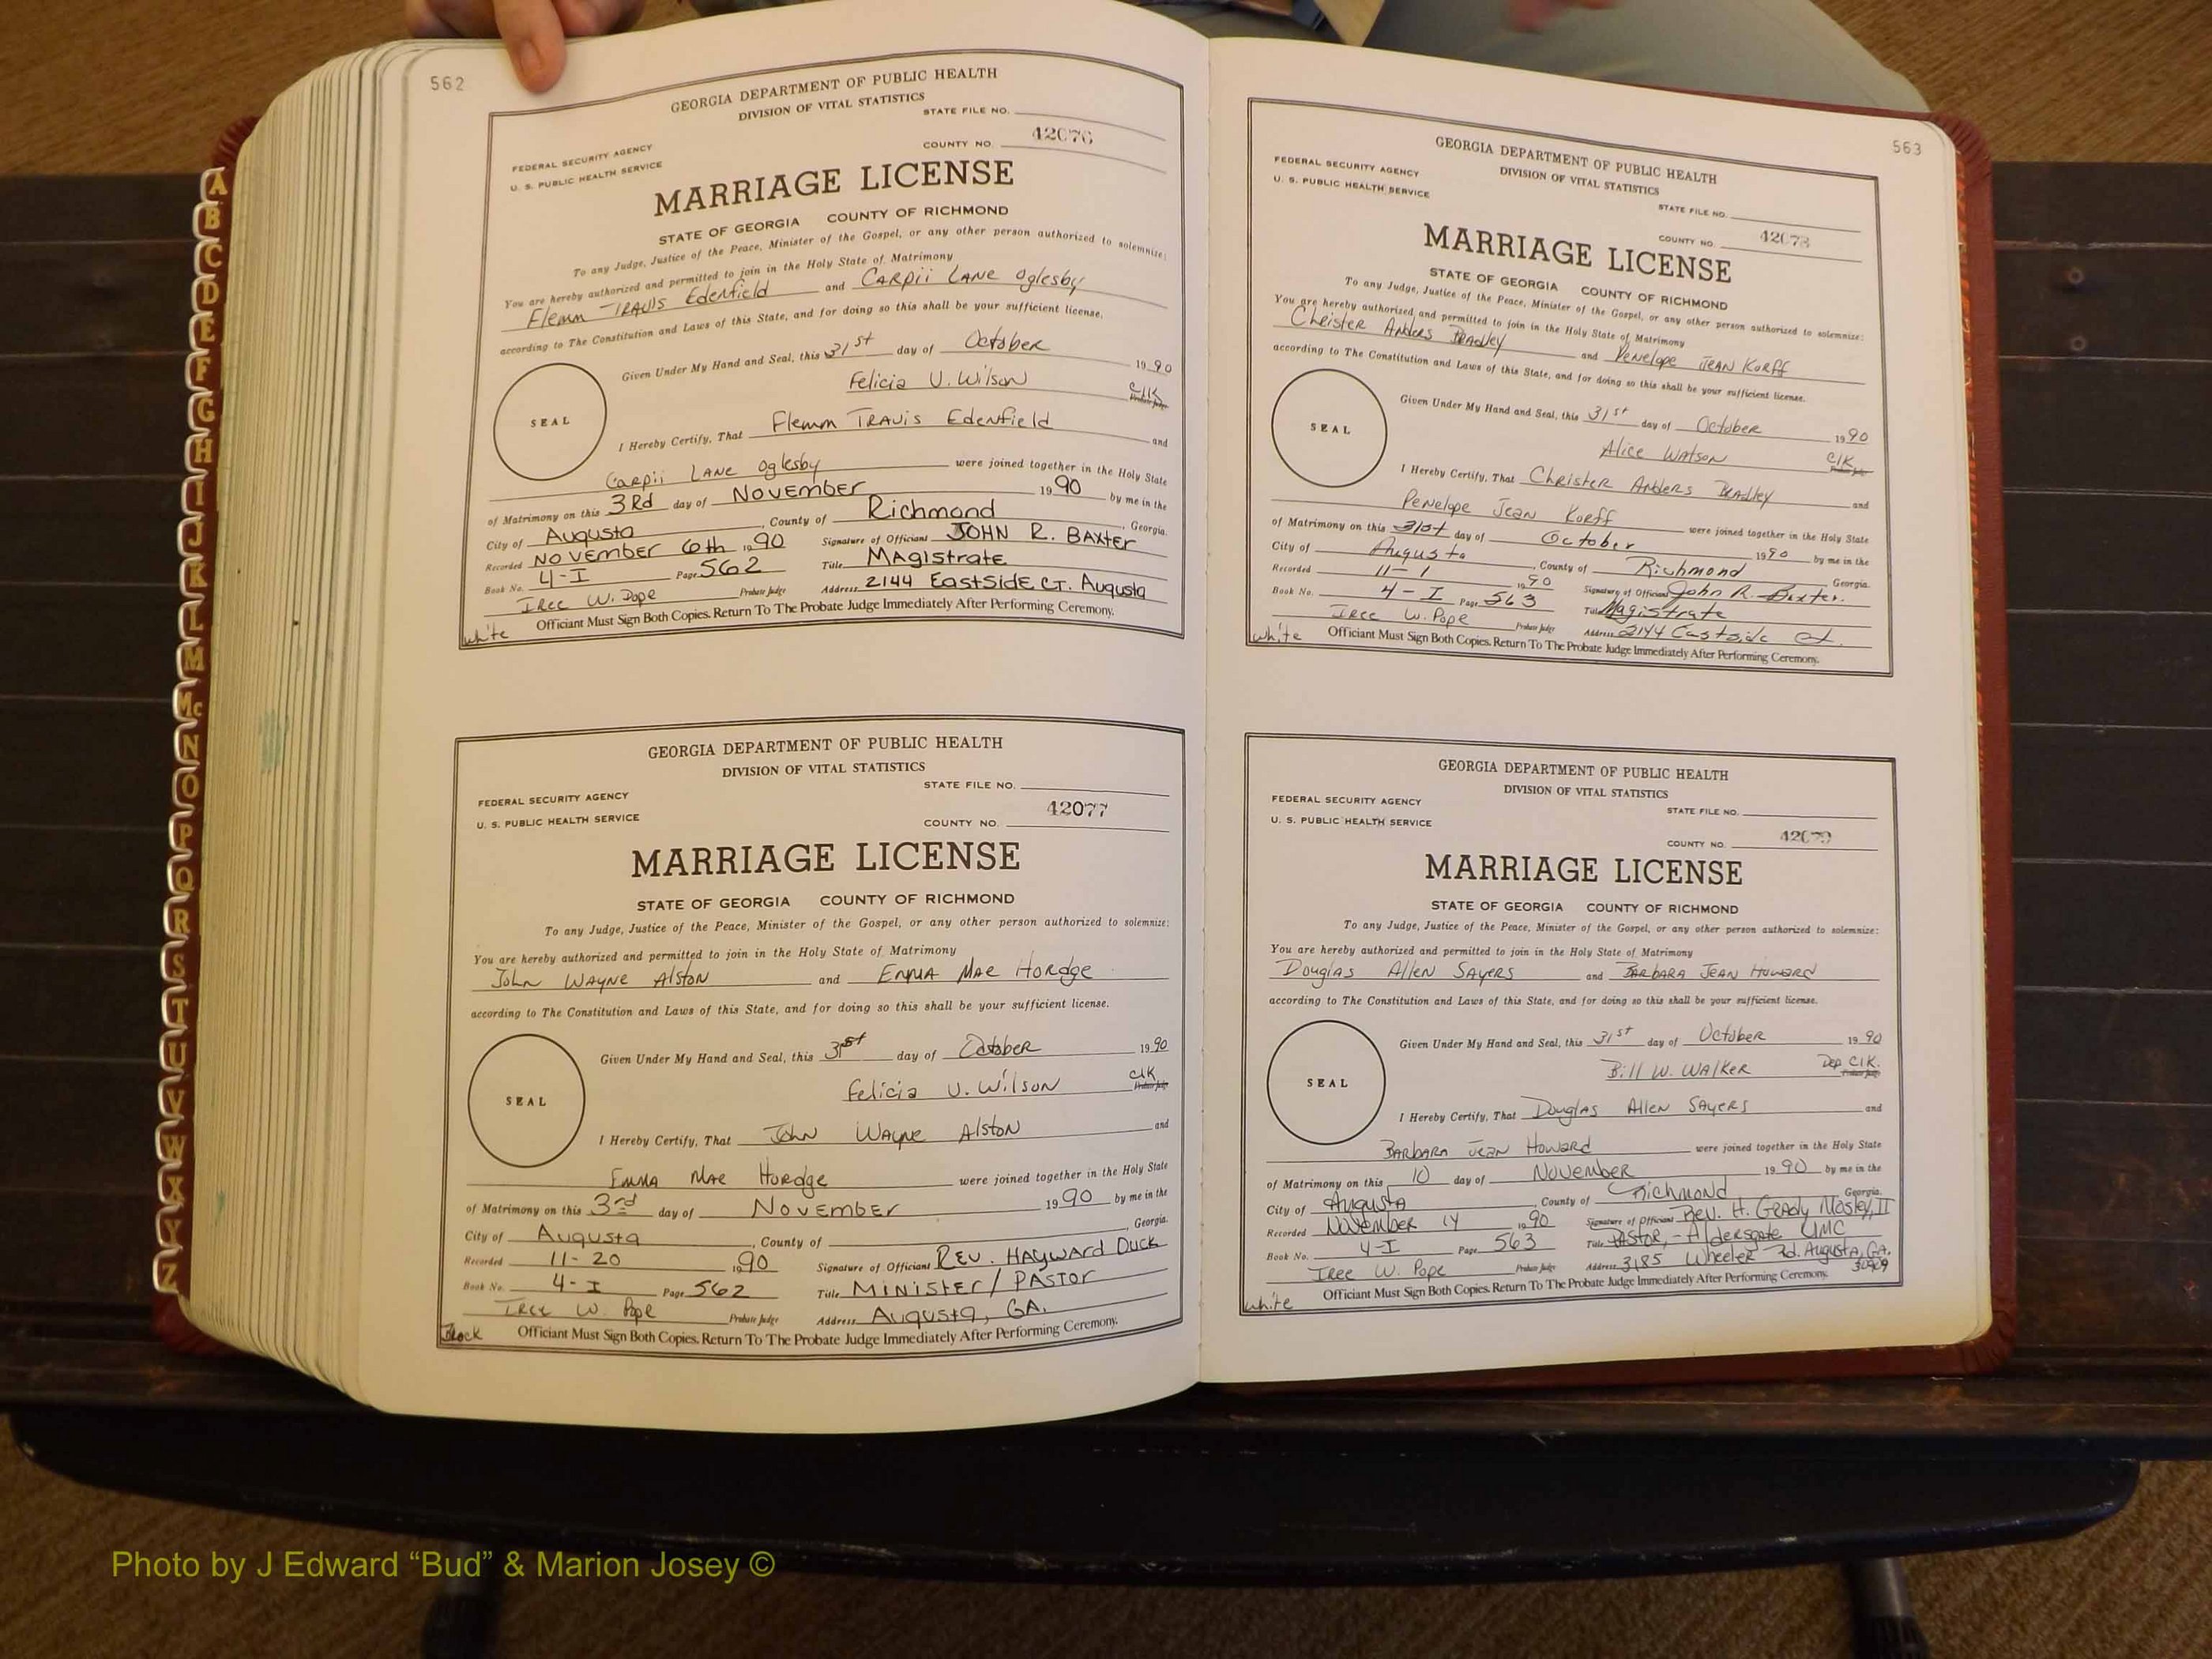 562
GEORGIA DEPARTMENT OF PUBLIC HEALTH
DIVISION OF VITAL STATISTICS
STATE FILE NO.
FEDERAL SECURITY AGENCY
COUNTY NO. 42076
U. S. PUBLIC HEALTH SERVICE
MARRIAGE LICENSE
STATE OF GEORGIA COUNTY OF RICHMOND
To any Judge, Justice of the Peace, Minister of the Gospel, or any other person authorized to solemnize:
You are hereby authorized and permitted to join in the Holy State of Matrimony
Flemm TRAVIS Edenfield and CARpii LANE Oglesby
according to The Constitution and Laws of this State, and for doing so this shall be your sufficient license.
Given Under My Hand and Seal, this 31st day of October 1990
Felicia U. Wilson Clk
SEAL
I Hereby Certify, That Flemm TRAVIS Edenfield and
CARpii LANE Oglesby were joined together in the Holy State
of Matrimony on this 3Rd day of NOVEMBER 1990 by me in the
City of Augusta, County of Richmond, Georgia.
Recorded NOVEMBER 6th 1990 Signature of Officiant JOHN R. BAXTER
Book No. 4-I Page 562 Title MAgistrate
IREE W. Pope Probate Judge Address 2144 EastSide Ct. Augusta
white Officiant Must Sign Both Copies. Return To The Probate Judge Immediately After Performing Ceremony.
GEORGIA DEPARTMENT OF PUBLIC HEALTH
DIVISION OF VITAL STATISTICS
STATE FILE NO.
FEDERAL SECURITY AGENCY
U. S. PUBLIC HEALTH SERVICE
COUNTY NO. 42077
MARRIAGE LICENSE
STATE OF GEORGIA COUNTY OF RICHMOND
To any Judge, Justice of the Peace, Minister of the Gospel, or any other person authorized to solemnize:
You are hereby authorized and permitted to join in the Holy State of Matrimony
John WAYNE Alston and EMMA MAE Hordge
according to The Constitution and Laws of this State, and for doing so this shall be your sufficient license.
Given Under My Hand and Seal, this 31st day of October 1990
Felicia U. Wilson Clk
SEAL
I Hereby Certify, That John WAYNE Alston and
EMMA MAE Hordge were joined together in the Holy State
of Matrimony on this 3rd day of NOVEMBER 1990 by me in the
City of Augusta, County of Georgia.
Recorded 11-20 1990 Signature of Officiant REV. HAYWARD DUCK
Book No. 4-I Page 562 Title MINISTER / PASTOR
IREE W. Pope Probate Judge Address AUGUSTA, GA.
Block Officiant Must Sign Both Copies. Return To The Probate Judge Immediately After Performing Ceremony.
563
GEORGIA DEPARTMENT OF PUBLIC HEALTH
DIVISION OF VITAL STATISTICS
FEDERAL SECURITY AGENCY
U. S. PUBLIC HEALTH SERVICE
STATE FILE NO.
COUNTY NO. 42078
MARRIAGE LICENSE
STATE OF GEORGIA COUNTY OF RICHMOND
To any Judge, Justice of the Peace, Minister of the Gospel, or any other person authorized to solemnize:
You are hereby authorized and permitted to join in the Holy State of Matrimony
Christer Anders Bradley and Penelope JEAN Korff
according to The Constitution and Laws of this State, and for doing so this shall be your sufficient license.
Given Under My Hand and Seal, this 31st day of October 1990
Alice Watson Clk
SEAL
I Hereby Certify, That Christer Anders Bradley and
Penelope Jean Korff were joined together in the Holy State
of Matrimony on this 31st day of October 1990 by me in the
City of Augusta, County of Richmond Georgia.
Recorded 11-1 1990 Signature of Officiant John R. Baxter.
Book No. 4-I Page 563 Title Magistrate
IREE W. Pope Probate Judge Address 2144 Eastside Ct.
white Officiant Must Sign Both Copies. Return To The Probate Judge Immediately After Performing Ceremony.
GEORGIA DEPARTMENT OF PUBLIC HEALTH
DIVISION OF VITAL STATISTICS
FEDERAL SECURITY AGENCY
STATE FILE NO.
U. S. PUBLIC HEALTH SERVICE
COUNTY NO. 42079
MARRIAGE LICENSE
STATE OF GEORGIA COUNTY OF RICHMOND
To any Judge, Justice of the Peace, Minister of the Gospel, or any other person authorized to solemnize:
You are hereby authorized and permitted to join in the Holy State of Matrimony
Douglas Allen Sayers and BARBARA JEAN Howard
according to The Constitution and Laws of this State, and for doing so this shall be your sufficient license.
Given Under My Hand and Seal, this 31st day of October 1990
Bill W. Walker Dep. Clk.
SEAL
I Hereby Certify, That Douglas Allen Sayers and
BARBARA JEAN Howard were joined together in the Holy State
of Matrimony on this 10 day of November 1990 by me in the
City of Augusta, County of Richmond Georgia.
Recorded November 14 1990 Signature of Officiant Rev. H. Grady Mosley, II
Book No. 4-I Page 563 Title PASTOR, - Aldersgate UMC
IREE W. Pope Probate Judge Address 3185 Wheeler Rd. Augusta, GA. 30909
white Officiant Must Sign Both Copies. Return To The Probate Judge Immediately After Performing Ceremony.
A
B
C
D
E
F
G
H
I
J
K
L
M
Mc
N
O
P
Q
R
S
T
U
V
W
X
Y
Z
Photo by J Edward “Bud” & Marion Josey ©